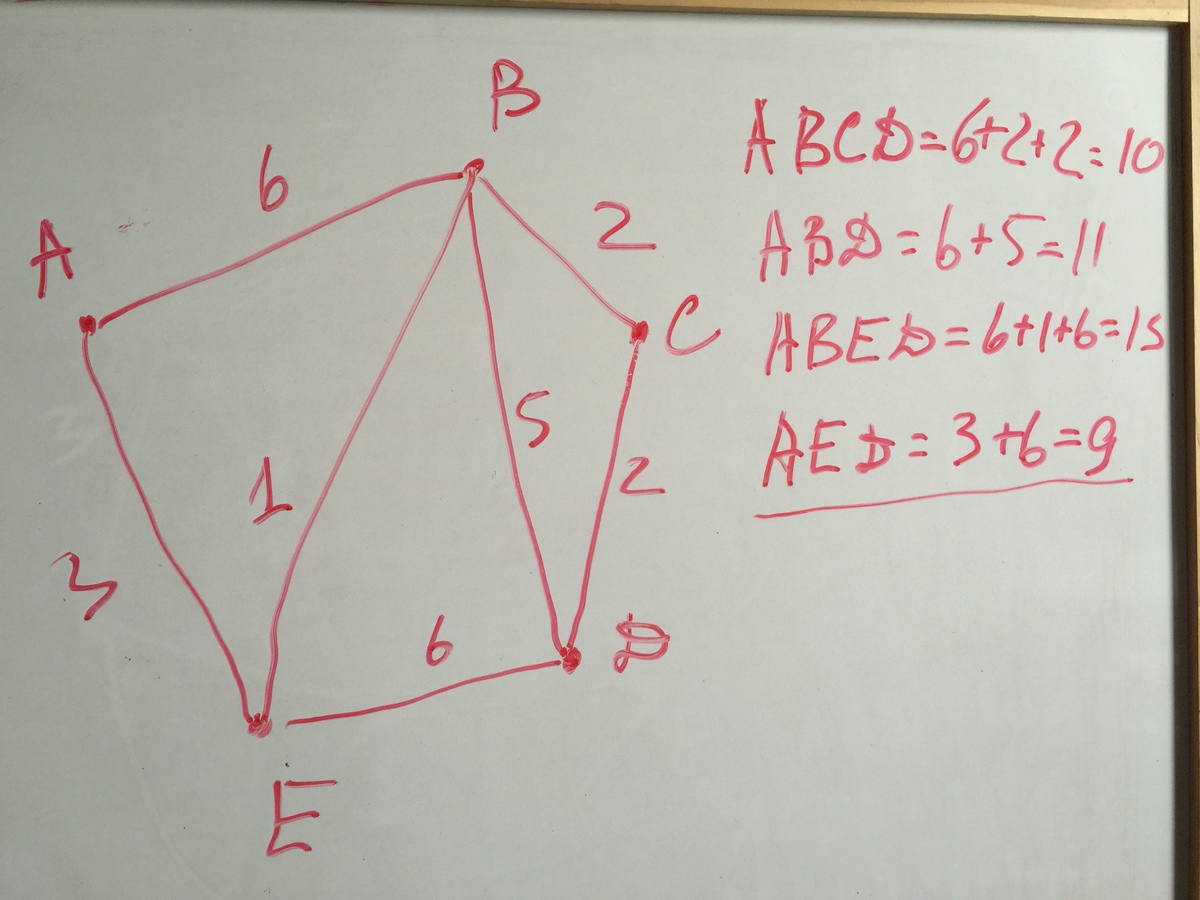 B
6
A
2
C
5
1
2
3
6
D
E
ABCD=6+2+2=10
ABD=6+5=11
ABED=6+1+6=15
AED=3+6=9